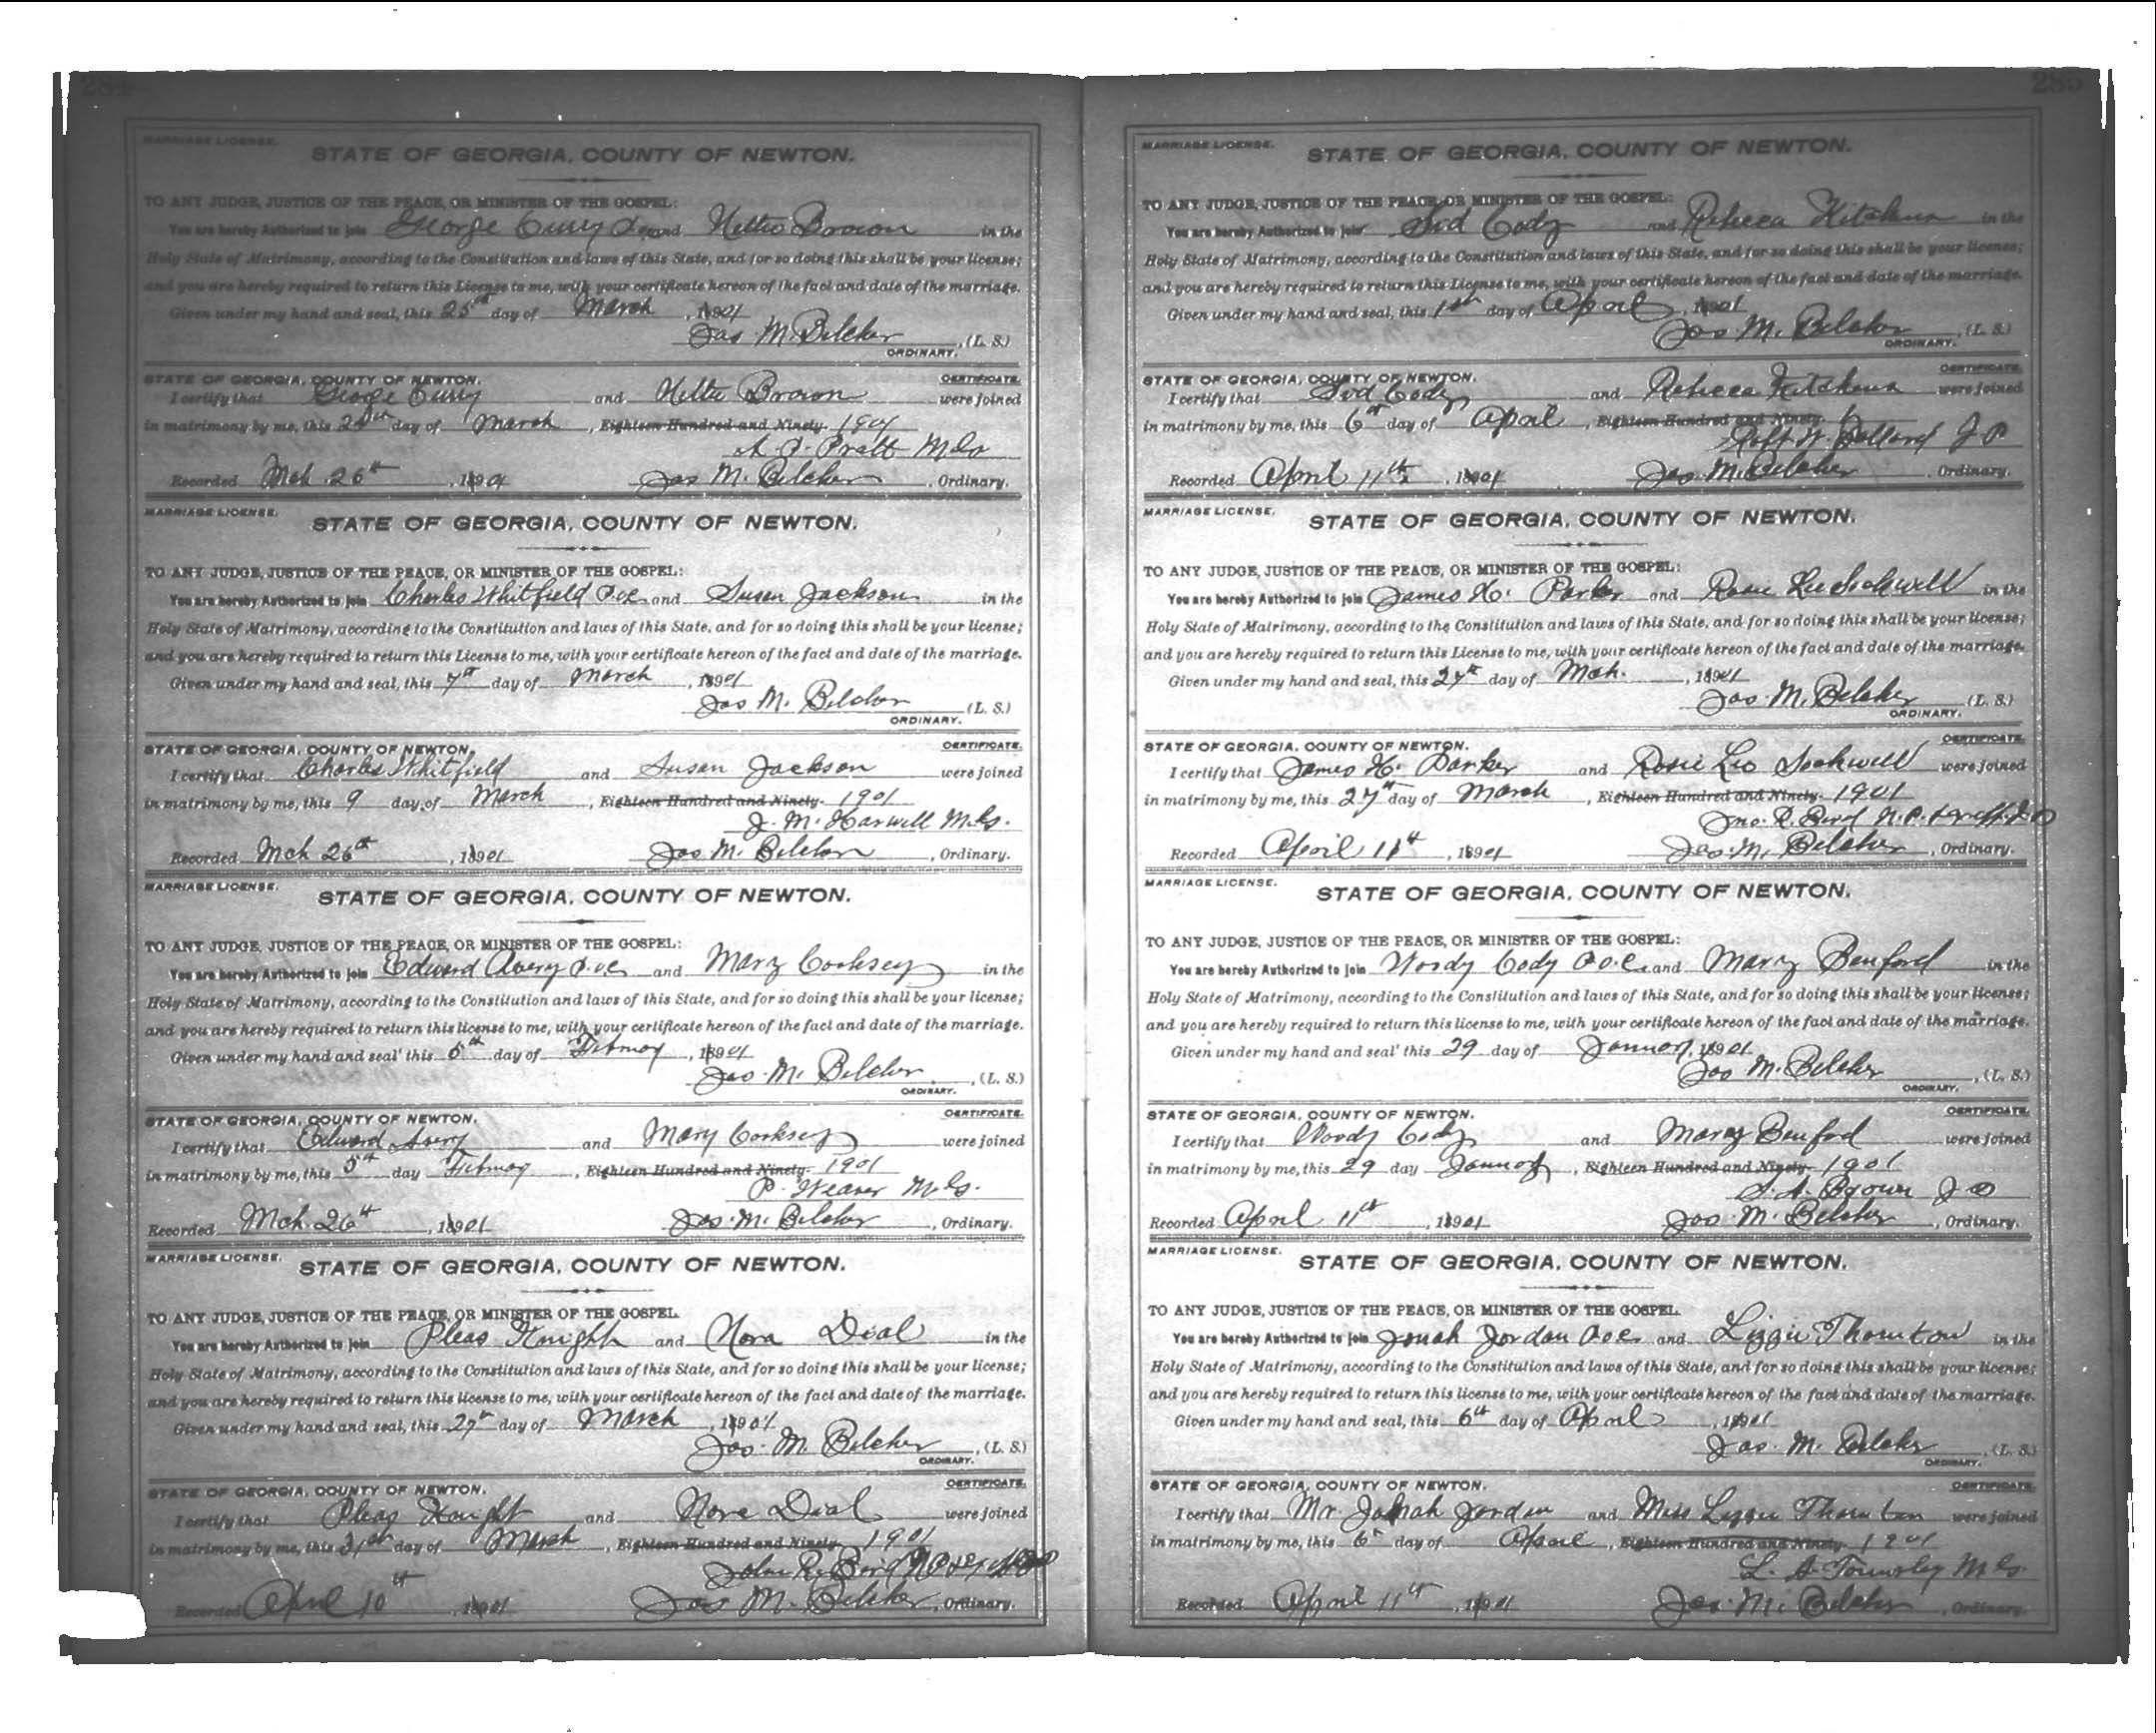 284
MARRIAGE LICENSE.
STATE OF GEORGIA, COUNTY OF NEWTON.
TO ANY JUDGE, JUSTICE OF THE PEACE, OR MINISTER OF THE GOSPEL:
You are hereby Authorized to join George Curry and Brown in the
Holy State of Matrimony, according to the Constitution and laws of this State, and for so doing this shall be your license;
and you are hereby required to return this License to me, with your certificate hereon of the fact and date of the marriage.
Given under my hand and seal, this 25th day of March, 1901
Jas M. Belcher, (L. S.)
ORDINARY.
STATE OF GEORGIA, COUNTY OF NEWTON. CERTIFICATE.
I certify that George Curry and Brown were joined
in matrimony by me, this day of March, Eighteen Hundred and Ninety- 1901
Pratt M.G.
Recorded Mch 26th, 1901 Jas M. Belcher, Ordinary.
MARRIAGE LICENSE.
STATE OF GEORGIA, COUNTY OF NEWTON.
TO ANY JUDGE, JUSTICE OF THE PEACE, OR MINISTER OF THE GOSPEL:
You are hereby Authorized to join Charles Whitfield and Susan Jackson in the
Holy State of Matrimony, according to the Constitution and laws of this State, and for so doing this shall be your license;
and you are hereby required to return this License to me, with your certificate hereon of the fact and date of the marriage.
Given under my hand and seal, this 7th day of March, 1901
Jas M. Belcher (L. S.)
ORDINARY.
STATE OF GEORGIA, COUNTY OF NEWTON. CERTIFICATE.
I certify that Charles Whitfield and Susan Jackson were joined
in matrimony by me, this 9 day of March, Eighteen Hundred and Ninety- 1901
J. M. Harwell M.G.
Recorded Mch 26th, 1901 Jas M. Belcher, Ordinary.
MARRIAGE LICENSE.
STATE OF GEORGIA, COUNTY OF NEWTON.
TO ANY JUDGE, JUSTICE OF THE PEACE, OR MINISTER OF THE GOSPEL:
You are hereby Authorized to join Edward Avery and Mary Cooksey in the
Holy State of Matrimony, according to the Constitution and laws of this State, and for so doing this shall be your license;
and you are hereby required to return this license to me, with your certificate hereon of the fact and date of the marriage.
Given under my hand and seal' this 5th day of, 1901
Jas. M. Belcher, (L. S.)
ORDINARY.
STATE OF GEORGIA, COUNTY OF NEWTON. CERTIFICATE.
I certify that Edward Avery and Mary Cooksey were joined
in matrimony by me, this 5th day, Eighteen Hundred and Ninety- 1901
P. Weaver M.G.
Recorded Mch 26th, 1901 Jas. M. Belcher, Ordinary.
MARRIAGE LICENSE.
STATE OF GEORGIA, COUNTY OF NEWTON.
TO ANY JUDGE, JUSTICE OF THE PEACE, OR MINISTER OF THE GOSPEL.
You are hereby Authorized to join Pleas Knight and Nora Dial in the
Holy State of Matrimony, according to the Constitution and laws of this State, and for so doing this shall be your license;
and you are hereby required to return this license to me, with your certificate hereon of the fact and date of the marriage.
Given under my hand and seal, this 27th day of March, 1901
Jas. M. Belcher, (L. S.)
ORDINARY.
STATE OF GEORGIA, COUNTY OF NEWTON. CERTIFICATE.
I certify that Pleas Knight and Nora Dial were joined
in matrimony by me, this 31st day of March, Eighteen Hundred and Ninety- 1901
John R. Bird
Recorded April 10th, 1901 Jas M. Belcher, Ordinary.
285
MARRIAGE LICENSE.
STATE OF GEORGIA, COUNTY OF NEWTON.
TO ANY JUDGE, JUSTICE OF THE PEACE, OR MINISTER OF THE GOSPEL:
You are hereby Authorized to join Cody and Rebecca Kitchens in the
Holy State of Matrimony, according to the Constitution and laws of this State, and for so doing this shall be your license;
and you are hereby required to return this License to me, with your certificate hereon of the fact and date of the marriage.
Given under my hand and seal, this 1st day of April, 1901
Jas M. Belcher, (L. S.)
ORDINARY.
STATE OF GEORGIA, COUNTY OF NEWTON. CERTIFICATE.
I certify that Cody and Rebecca Kitchens were joined
in matrimony by me, this 6th day of April, Eighteen Hundred and Ninety-
J P
Recorded April 11th, 1901 Jas. M. Belcher, Ordinary.
MARRIAGE LICENSE.
STATE OF GEORGIA, COUNTY OF NEWTON.
TO ANY JUDGE, JUSTICE OF THE PEACE, OR MINISTER OF THE GOSPEL:
You are hereby Authorized to join James H. Parker and Rosie Lee Sockwell in the
Holy State of Matrimony, according to the Constitution and laws of this State, and for so doing this shall be your license;
and you are hereby required to return this License to me, with your certificate hereon of the fact and date of the marriage.
Given under my hand and seal, this 27th day of Mch., 1901
Jas. M. Belcher (L. S.)
ORDINARY.
STATE OF GEORGIA, COUNTY OF NEWTON. CERTIFICATE.
I certify that James H. Parker and Rosie Lee Sockwell were joined
in matrimony by me, this 27th day of March, Eighteen Hundred and Ninety- 1901
Jno. R. Bird N.P.
Recorded April 11th, 1901 Jas. M. Belcher, Ordinary.
MARRIAGE LICENSE.
STATE OF GEORGIA, COUNTY OF NEWTON.
TO ANY JUDGE, JUSTICE OF THE PEACE, OR MINISTER OF THE GOSPEL:
You are hereby Authorized to join Woody Cody and Mary Benford in the
Holy State of Matrimony, according to the Constitution and laws of this State, and for so doing this shall be your license;
and you are hereby required to return this license to me, with your certificate hereon of the fact and date of the marriage.
Given under my hand and seal' this 29 day of January, 1901
Jas M. Belcher, (L. S.)
ORDINARY.
STATE OF GEORGIA, COUNTY OF NEWTON. CERTIFICATE.
I certify that Woody Cody and Mary Benford were joined
in matrimony by me, this 29 day January, Eighteen Hundred and Ninety- 1901
S. A. Brown J P
Recorded April 11th, 1901 Jas M. Belcher, Ordinary.
MARRIAGE LICENSE.
STATE OF GEORGIA, COUNTY OF NEWTON.
TO ANY JUDGE, JUSTICE OF THE PEACE, OR MINISTER OF THE GOSPEL.
You are hereby Authorized to join Jonah Jordan and Lizzie Thornton in the
Holy State of Matrimony, according to the Constitution and laws of this State, and for so doing this shall be your license;
and you are hereby required to return this license to me, with your certificate hereon of the fact and date of the marriage.
Given under my hand and seal, this 6th day of April, 1901
Jas. M. Belcher, (L. S.)
ORDINARY.
STATE OF GEORGIA, COUNTY OF NEWTON. CERTIFICATE.
I certify that Mr. Jonah Jordan and Miss Lizzie Thornton were joined
in matrimony by me, this 6th day of April, Eighteen Hundred and Ninety- 1901
L. A. Townsley M.G.
Recorded April 11th, 1901 Jas. M. Belcher, Ordinary.